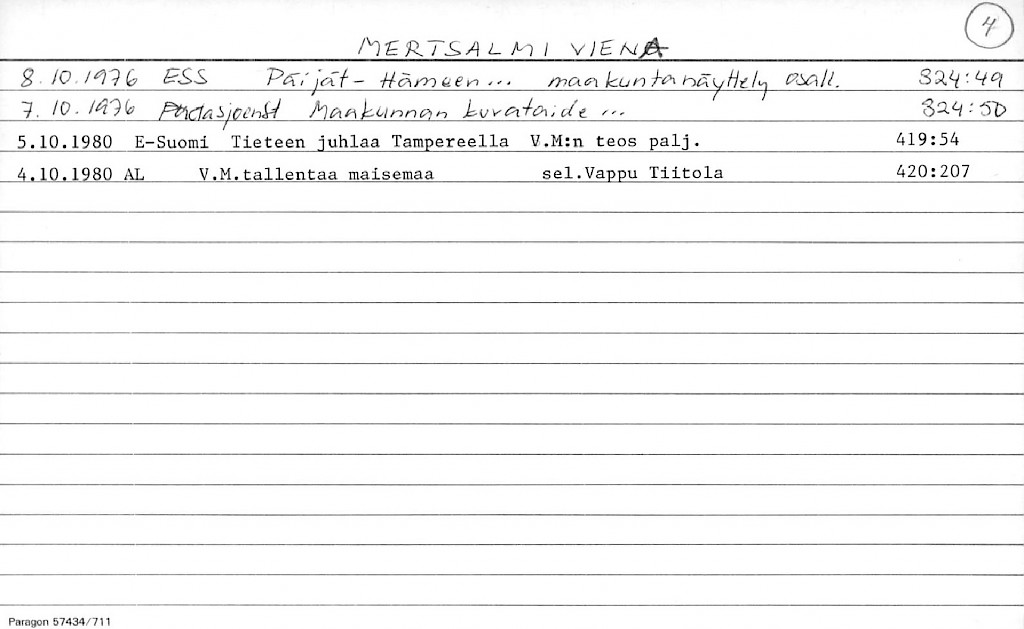 4
MERTSALMI VIENA
8.10.1976 ESS Päijät-Hämeen... maakuntanäyttely osall. 324:49
7.10.1976 Maakunnan kuvataide... 324:50
5.10.1980 E-Suomi Tieteen juhlaa Tampereella V.M:n teos palj. 419:54
4.10.1980 AL V.M.tallentaa maisemaa sel.Vappu Tiitola 420:207
Paragon 57434/711